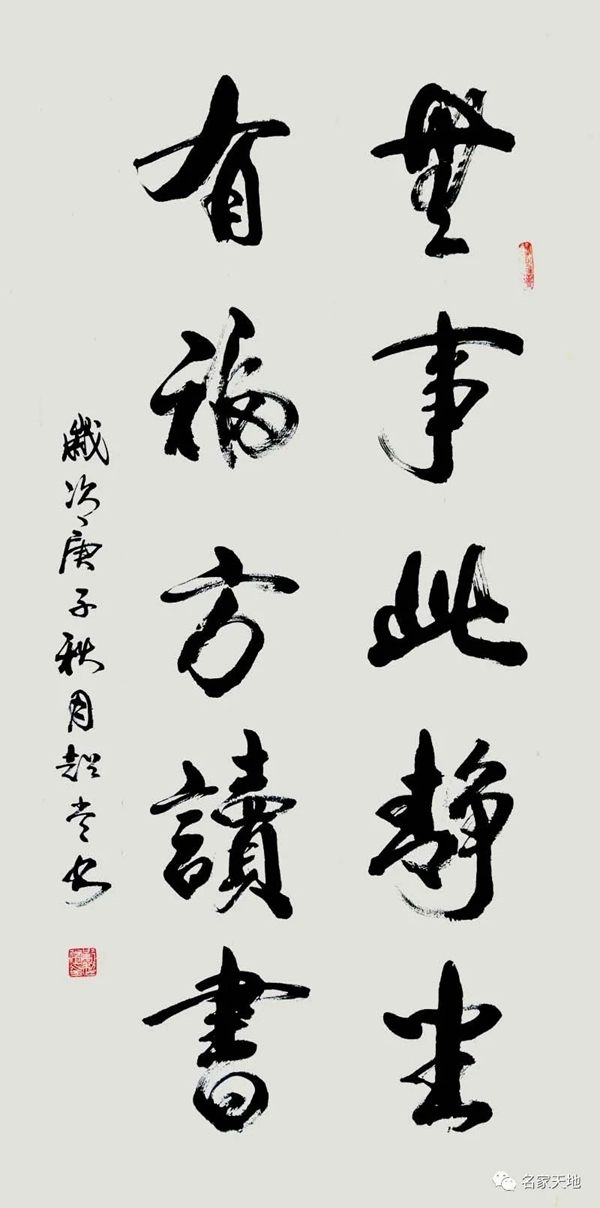 無事此靜坐
有福方讀書
歲次庚子秋月超堂书
名家天地